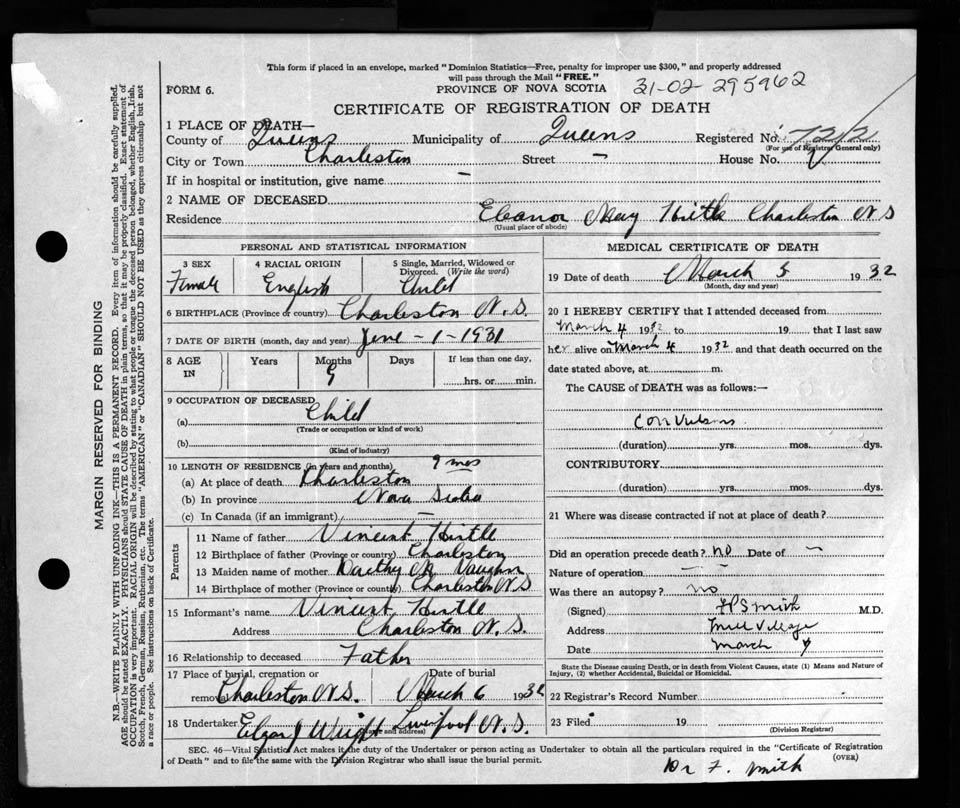 This form if placed in an envelope, marked "Dominion Statistics—Free, penalty for improper use $300," and properly addressed
will pass through the Mail "FREE."
FORM 6.
PROVINCE OF NOVA SCOTIA
31-02-295962
CERTIFICATE OF REGISTRATION OF DEATH
1 PLACE OF DEATH—
County of Queens Municipality of Queens Registered No. 7212
(For use of Registrar General only)
City or Town Charleston Street — House No.
If in hospital or institution, give name —
2 NAME OF DECEASED
Eleanor May Hirtle Charleston N S
Residence
(Usual place of abode)
PERSONAL AND STATISTICAL INFORMATION
3 SEX
Female
4 RACIAL ORIGIN
English
5 Single, Married, Widowed or
Divorced. (Write the word)
Child
6 BIRTHPLACE (Province or country) Charleston N. S.
7 DATE OF BIRTH (month, day and year) June - 1 - 1931
8 AGE
IN
Years
Months
9
Days
If less than one day,
hrs. or min.
9 OCCUPATION OF DECEASED
(a) Child
(Trade or occupation or kind of work)
(b)
(Kind of industry)
10 LENGTH OF RESIDENCE (in years and months) 9 mos
(a) At place of death Charleston
(b) In province Nova Scotia
(c) In Canada (if an immigrant) —
Parents
11 Name of father Vincent Hirtle
12 Birthplace of father (Province or country) Charleston
13 Maiden name of mother Dorthy M Vaughn
14 Birthplace of mother (Province or country) Charleston N S
15 Informant's name Vincent Hirtle
Address Charleston N. S.
16 Relationship to deceased Father
17 Place of burial, cremation or Date of burial
removal Charleston N S. March 6 1932
18 Undertaker Elgar J Wright Liverpool N. S.
(Name and address)
MEDICAL CERTIFICATE OF DEATH
19 Date of death March 5 1932
(Month, day and year)
20 I HEREBY CERTIFY that I attended deceased from
March 4 1932 to 19 that I last saw
her alive on March 4 1932 and that death occurred on the
date stated above, at m.
The CAUSE of DEATH was as follows:—
Convulsions
(duration) yrs. mos. dys.
CONTRIBUTORY
(duration) yrs. mos. dys.
21 Where was disease contracted if not at place of death?
Did an operation precede death? no Date of —
Nature of operation — —
Was there an autopsy? no
(Signed) F P Smith M.D.
Address Mill Village
Date March
State the Disease causing Death, or in death from Violent Causes, state (1) Means and Nature of
Injury, (2) whether Accidental, Suicidal or Homicidal.
22 Registrar's Record Number
23 Filed 19
(Division Registrar)
SEC. 46—Vital Statistics Act makes it the duty of the Undertaker or person acting as Undertaker to obtain all the particulars required in the "Certificate of Registration
of Death" and to file the same with the Division Registrar who shall issue the burial permit.
(OVER)
Dr F. Smith
MARGIN RESERVED FOR BINDING
N.B.—WRITE PLAINLY WITH UNFADING INK—THIS IS A PERMANENT RECORD. Every item of information should be carefully supplied.
AGE should be stated EXACTLY. PHYSICIANS should STATE CAUSE OF DEATH in plain terms, so that it may be properly classified. Exact statement of
OCCUPATION is very important. RACIAL ORIGIN will be described by stating to what people or tongue the deceased person belonged, whether English, Irish,
Scotch, French, German, Russian, Ruthenian, etc. The terms "AMERICAN" or "CANADIAN" SHOULD NOT BE USED as they express citizenship but not
a race or people. See instructions on back of Certificate.